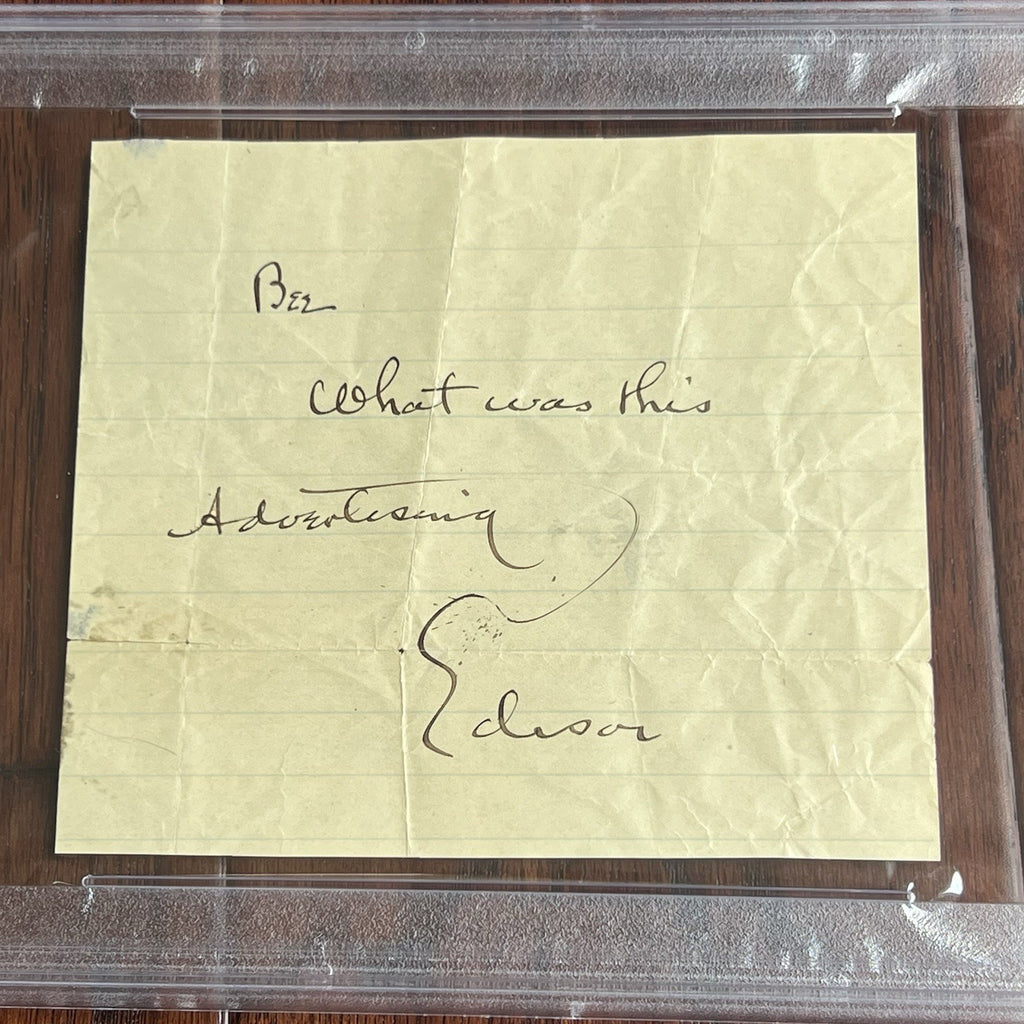 Bee
What was this
Advertising
Edison